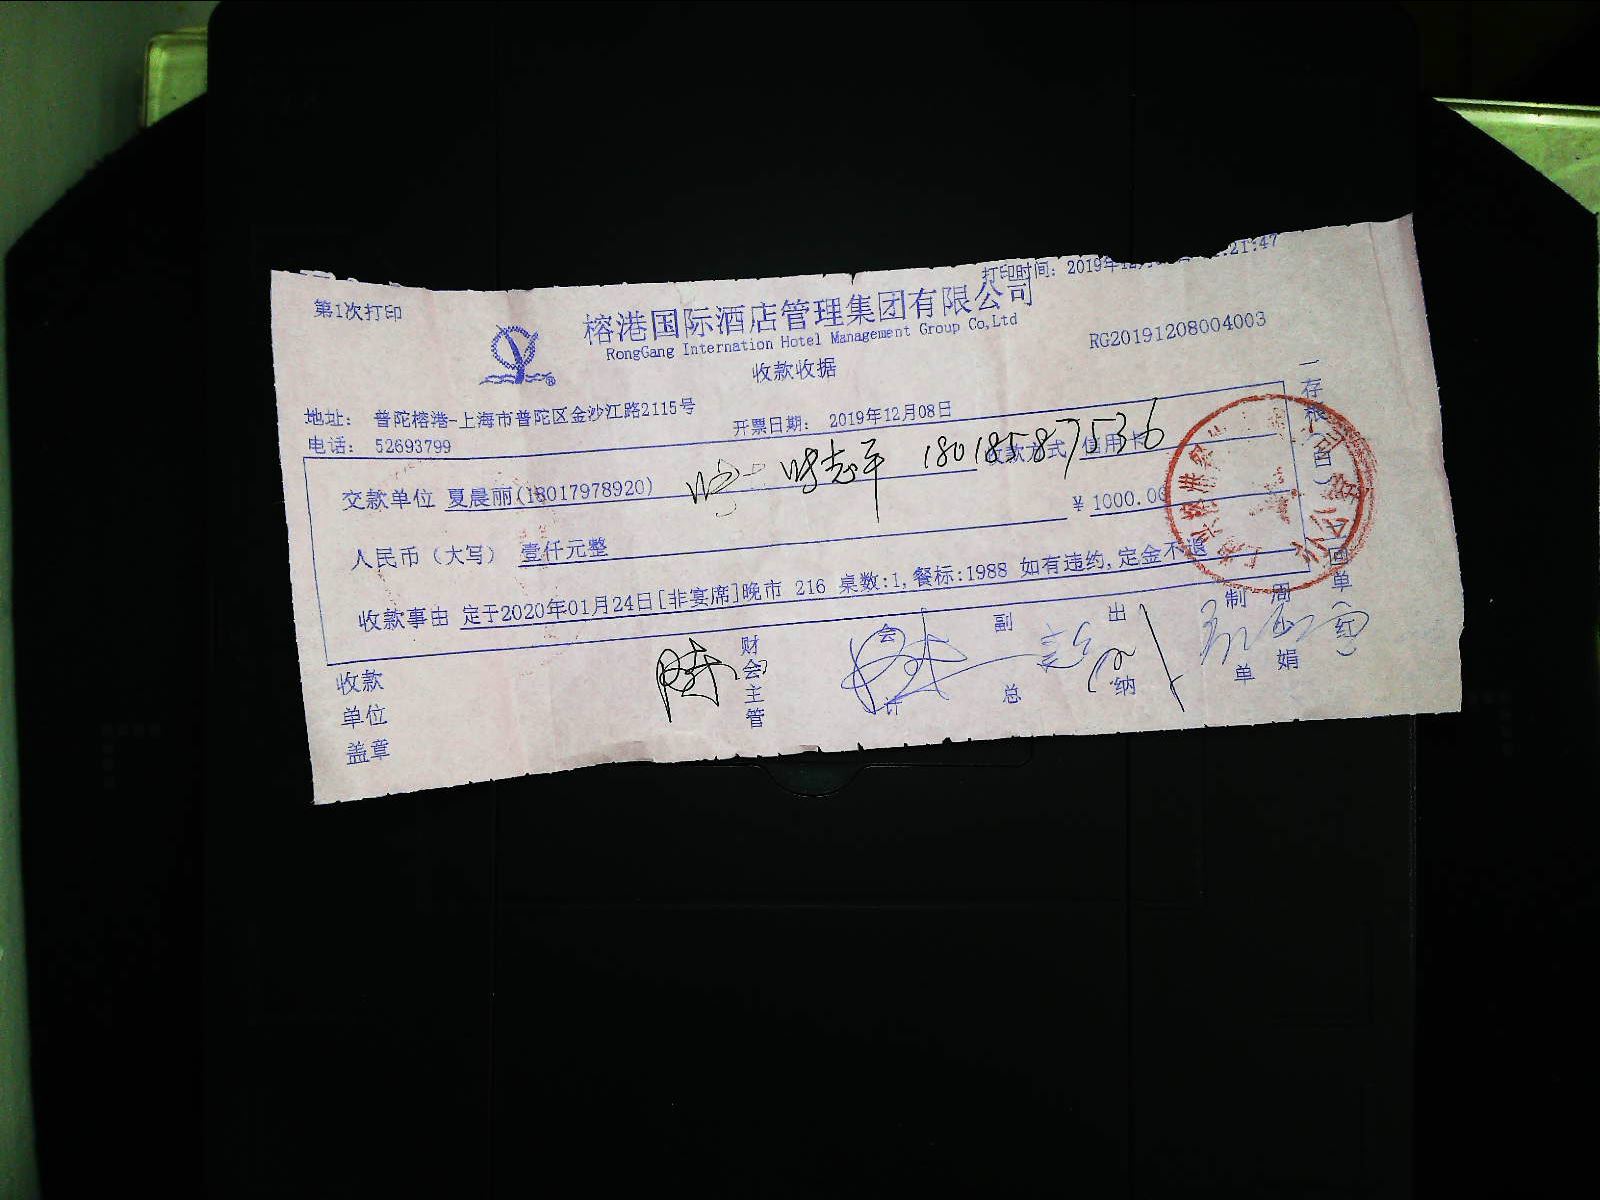 第1次打印
打印时间: 2019年12月 21:47
榕港国际酒店管理集团有限公司
RongGang Internation Hotel Management Group Co,Ltd
RG20191208004003
收款收据
地址: 普陀榕港-上海市普陀区金沙江路2115号
开票日期: 2019年12月08日
电话: 52693799
交款单位 夏晨丽(18017978920)
18018587536
收款方式 信用卡
人民币(大写) 壹仟元整
¥ 1000.00
收款事由 定于2020年01月24日[非宴席]晚市 216 桌数:1,餐标:1988 如有违约,定金不退
收款单位盖章
财会主管
会计
副总
出纳
制单
周娟
一存根(白)
回单(红)